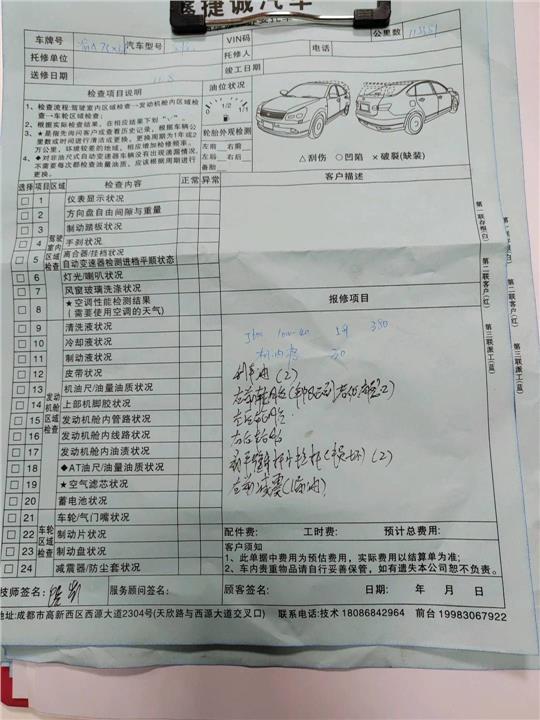 捷诚汽车
车牌号 汽车型号 VIN码 公里数
托修单位 托修人 电话
送修日期 竣工日期
检查项目说明 油位状况
1、检查流程:驾驶室内区域检查→发动机舱内区域检查→车轮区域检查;
2、根据实际检查结果, 在相应结果下划“√”。
3、★是指先询问客户或查看历史记录, 根据车辆公里数或时间进行清洁或更换。更换周期为1年或2万公里, 环境较差的地域, 相应增加检修频率。
4、◆对非油尺式自动变速器车辆没有出现渗漏情况, 不需要每次都检查油量油质, 应该根据周期进行更换。
0 1/2 1/1
轮胎外观检测
左前 右前
左后 右后
备胎
△刮伤 ○凹陷 ×破裂(缺装)
选择 项目 区域 检查内容 正常 异常 客户描述
驾驶室内区域检查
1 仪表显示状况
2 方向盘自由间隙与重量
3 制动踏板状况
4 手刹状况
5 离合器/挂档状况
自动变速器检测进档平顺状态
6 灯光/喇叭状况
7 风窗玻璃洗涤状况
8 ★空调性能检测结果
(需要使用空调的天气)
报修项目
发动机舱区域检查
9 清洗液状况
10 冷却液状况
11 制动液状况
12 皮带状况
13 机油尺/油量油质状况
14 上部机脚胶状况
15 发动机舱内管路状况
16 发动机舱内线路状况
17 发动机舱内油渍状况
18 ◆AT油尺/油量油质状况
19 ★空气滤芯状况
20 蓄电池状况
车轮区域检查
21 车轮/气门嘴状况
22 制动片状况
23 制动盘状况
24 减震器/防尘套状况
380
30
第一联存根(白)
第二联客户(红)
第三联派工(蓝)
第一联存根(白)
第二联客户(红)
第三联派工(蓝)
配件费: 工时费: 预计总费用:
客户须知
1、此单据中费用为预估费用, 实际费用以结算单为准;
2、车内贵重物品请自行妥善保管, 如有遗失本公司恕不负责。
技师签名: 服务顾问签名: 顾客签名: 日期: 年 月 日
地址:成都市高新西区西源大道2304号(天欣路与西源大道交叉口) 联系电话:技术 18086842964 前台 19983067922